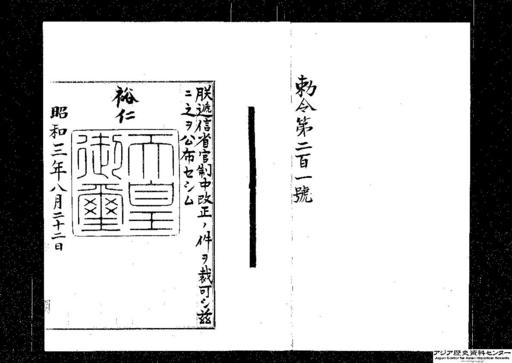 勅令第二百一號
朕遞信省官制中改正ノ件ヲ裁可シ茲
ニ之ヲ公布セシム
裕仁
天皇
御璽
昭和三年八月二十二日
アジア歴史資料センター
Japan Center for Asian Historical Records